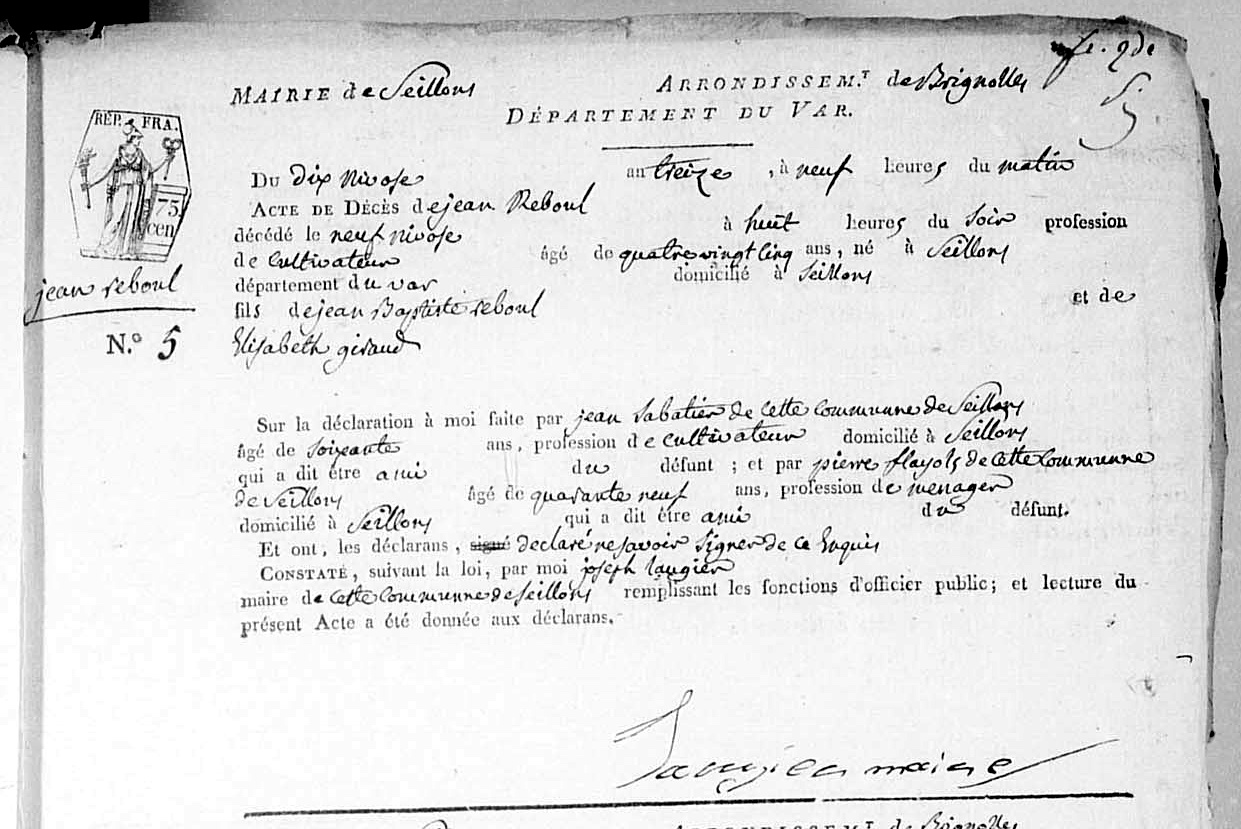 MAIRIE de Seillons ARRONDISSEM.T de Brignolles
DÉPARTEMENT DU VAR.
RÉP. FRA.
75
cen
Du Dix Nivose an treize, à neuf heures du matin
ACTE DE DÉCÈS de jean Reboul
décédé le neuf nivose à huit heures du Soir profession
de Cultivateur âgé de quatre vingt Cinq ans, né à Seillons
département du var domicilié à Seillons
fils de jean Baptiste reboul et de
Elisabeth giraud
jean reboul
N.º 5
Sur la déclaration à moi faite par jean Sabatier de Cette Commune de Seillons
âgé de Soixante ans, profession de cultivateur domicilié à Seillons
qui a dit être ami du défunt ; et par pierre flayols de Cette Commune
de Seillons âgé de quarante neuf ans, profession de menager
domicilié à Seillons qui a dit être ami du défunt.
Et ont, les déclarans, signé declaré ne savoir Signer de Ce Enquis
CONSTATÉ, suivant la loi, par moi joseph laugier
maire de Cette Commune de Seillons remplissant les fonctions d'officier public; et lecture du
présent Acte a été donnée aux déclarans.
Laugier maire
ARRONDISSEM.T de Brignolles